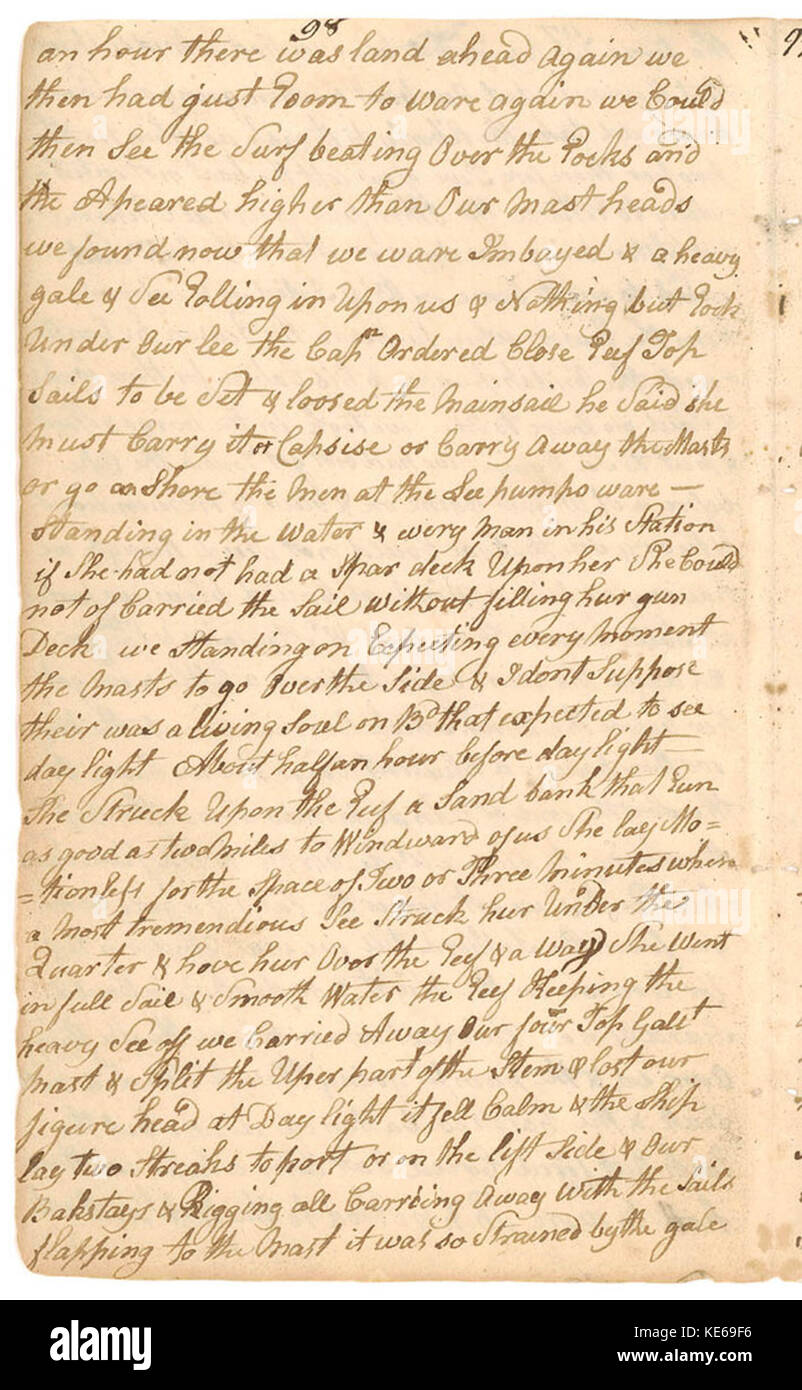 98
an hour there was land ahead Again we
then had just Room to ware again we Could
then See the Surf beating Over the Rocks and
the Apeared higher than Our Mast heads
we found now that we ware Imbayed & a heavy
gale & See Rolling in Upon us & Nothing but Rock
Under Our lee the Capn Ordered Close Reef Top
Sails to be Set & loosed the Mainsail he Said she
Must Carry it or Capsise or Carry Away the Masts
or go on Shore the Men at the See pumps ware —
Standing in the Water & every Man in his Station
if She had not had a Spar deck Upon her She Could
not of Carried the Sail Without filling hur gun
Deck we Standing on Expecting every Moment
the Masts to go Over the Side & I dont Suppose
their was a living Soul on Bd that expected to see
day light About half an hour before day light —
She Struck Upon the Reef a Sand bank that Run
as good as two Miles to Windward of us She lay Mo=
=tionless for the Space of Two or Three Minutes when
a Most tremendious See Struck hur Under the
Quarter & hove hur Over the Reef & a Way She Went
in full Sail & Smooth Water the Reef Keeping the
heavy See off we Carried Away Our four Top Gallt
Mast & Split the Uper part of the Stem & lost our
figure head at Day light it fell Calm & the Ship
lay two Streaks to port or on the lift Side & Our
Bakstays & Rigging all Carreing Away With the Sails
flapping to the Mast it was so Strained by the gale
alamy
alamy
Image ID: KE69F6
www.alamy.com